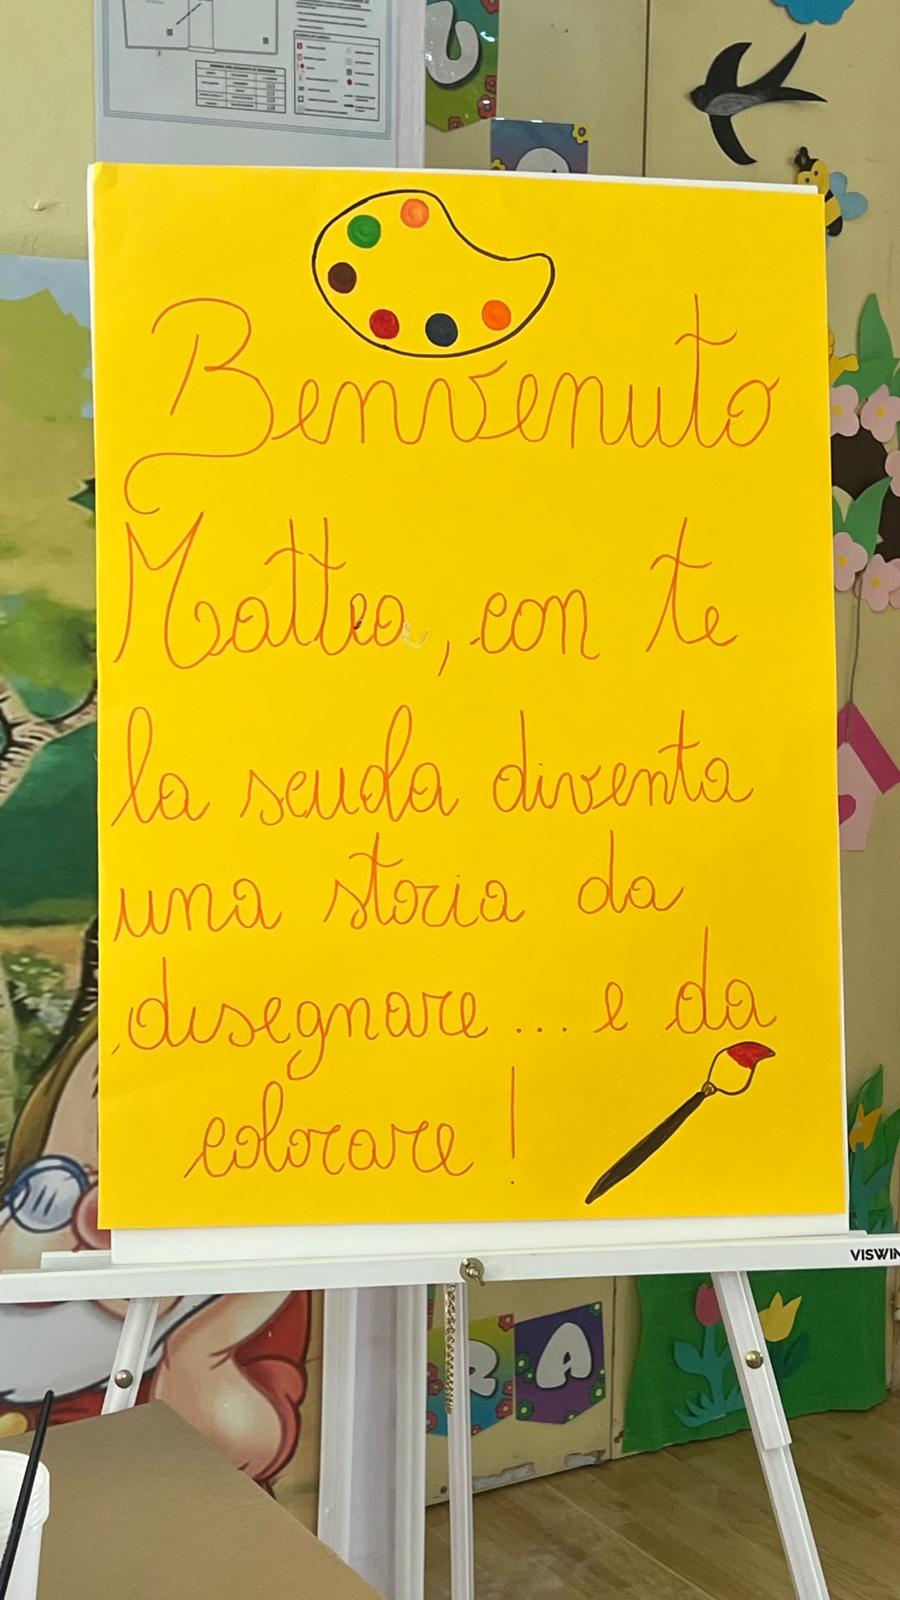 Benvenuto
Matteo, con te
la scuola diventa
una storia da
disegnare... e da
colorare!
VISWIN
R A